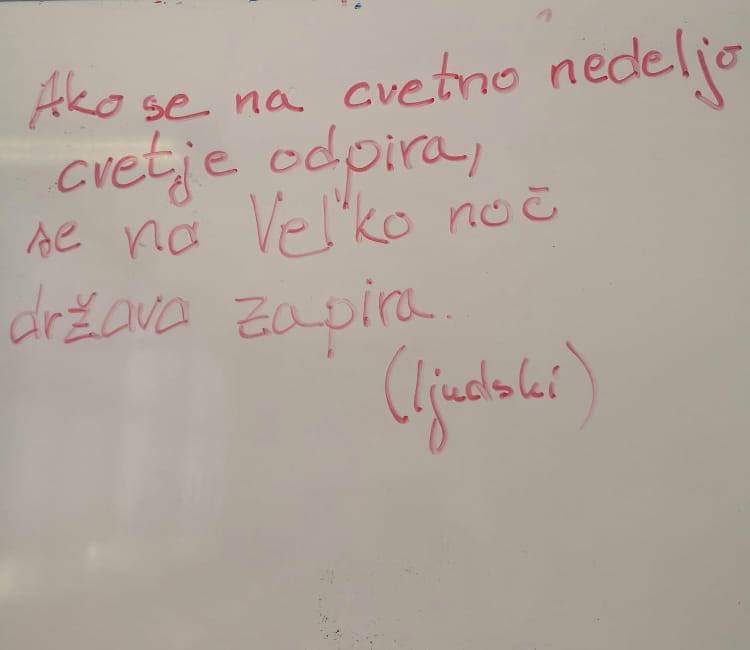 Ako se na cvetno nedeljo
cvetje odpira,
se na Vel'ko noč
država zapira.
(ljudski)